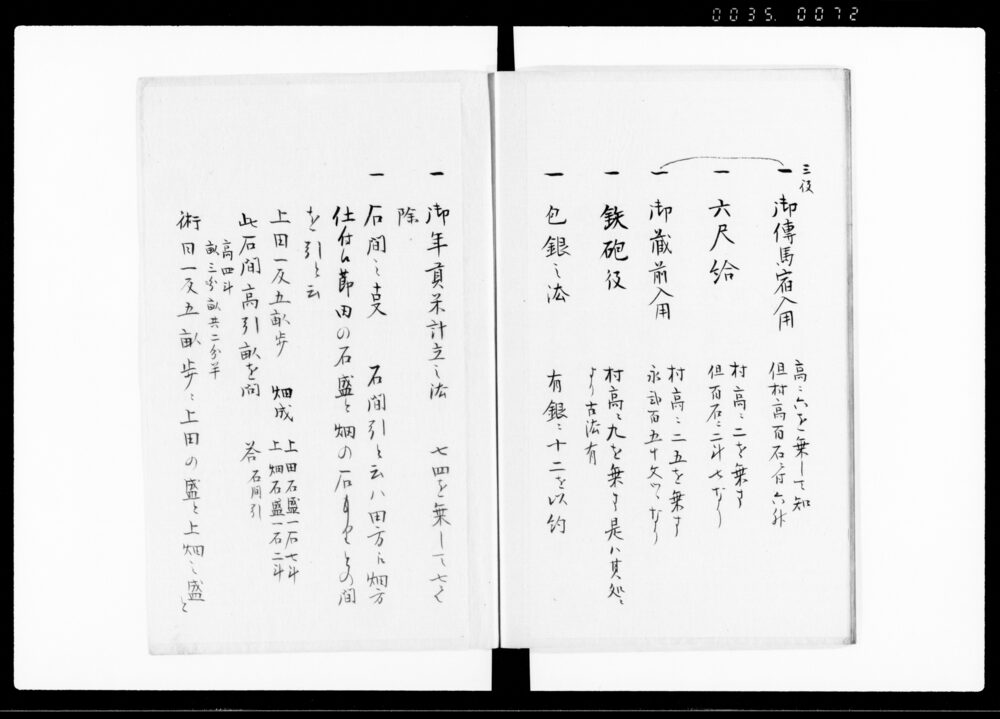 0035.0072
三役
一 御傳馬宿入用
高ニ六を乗して知
但村高百石ニ付六升
一 六尺給
村高ニ二を乗す
但百石ニ二斗ツゝなり
一 御蔵前入用
村高ニ二五を乗す
永弐百五十文ツゝなり
一 鉄砲役
村高ニ九を乗す是ハ其処ニ
より古法有
一 包銀之法
有銀ニ十二を以
一 御年貢米計立之法 七四を乗して七を
除
一 石間之事 石間引と云ハ田方に畑方
仕付候節田の石盛と畑の石もりとの間
を引と云
上田一反五畝歩 畑成
上田石盛一石七斗
上畑石盛一石二斗
此石間高引畝を問 答石間引
高四斗
畝三分畝共二分半
術曰一反五畝歩ニ上田の盛と上畑之盛と